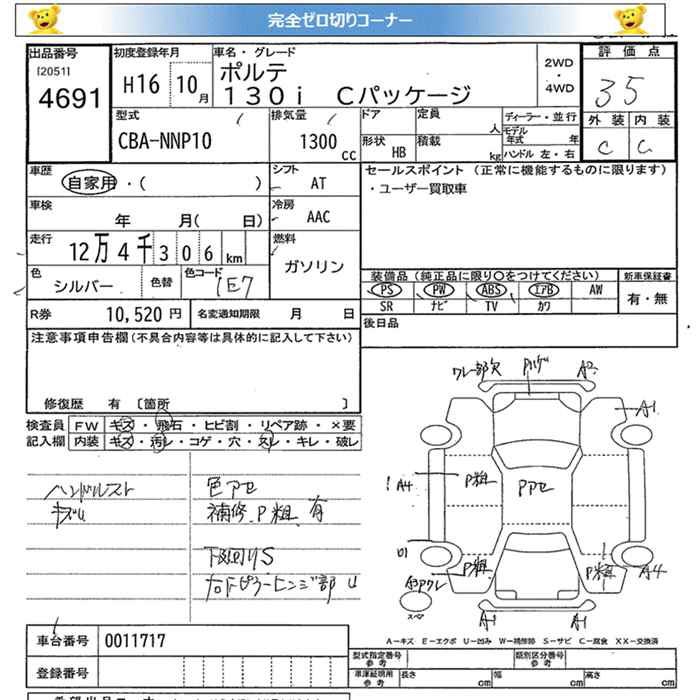 完全ゼロ切りコーナー
出品番号 初度登録年月 車名・グレード 評価点
[2051] 4691
H16 10月
ポルテ
130i Cパッケージ
2WD・4WD
35
型式 排気量 ドア 定員 人 ディーラー・並行 外装 内装
CBA-NNP10 1300cc 形状 HB 積載 kg モデル年式 年 ハンドル 左・右 C C
車歴 自家用・( ) シフト AT セールスポイント (正常に機能するものに限ります)
・ユーザー買取車
車検 年 月( 日) 冷房 AAC
走行 12万4千306km 燃料 ガソリン
色 シルバー 色替 色コード 1E7
装備品(純正品に限り○をつけてください) 新車保証書
PS PW ABS エアB AW 有・無
SR ナビ TV カワ
R券 10,520円 名変通知期限 月 日 後日品
注意事項申告欄(不具合内容等は具体的に記入して下さい)
修復歴 有 [箇所 ]
検査員 FW キズ・飛石・ヒビ割・リペア跡・×要
記入欄 内装 キズ・汚レ・コゲ・穴・スレ・キレ・破レ
ハンドルスレ
キズU
色アセ
補修、P粗、有
下廻りS
右Fピラーヒンジ部U
ワレ一部欠 Pハゲ A2
A1
A4 P粗 Pアセ
U1 P粗 P粗 A4
スペア
A1 A1
A-キズ E-エクボ U-凹み W-補修跡 S-サビ C-腐食 XX-交換済
車台番号 0011717
登録番号
型式指定番号 参考 類別区分番号 参考
車庫証明用 参考 長さ cm 幅 cm 高さ cm